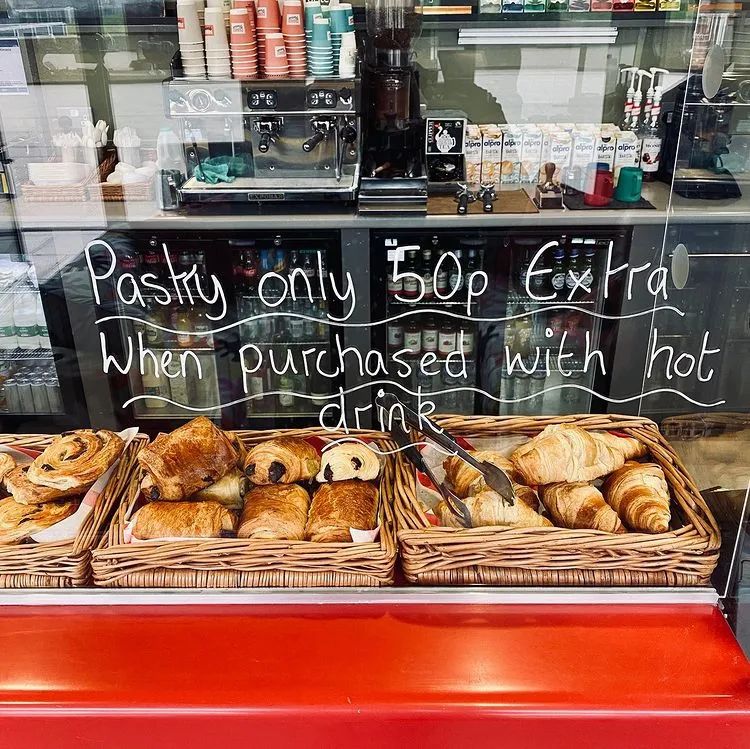 alpro alpro alpro alpro alpro alpro
Pastry only 50p Extra
When purchased with hot
drink